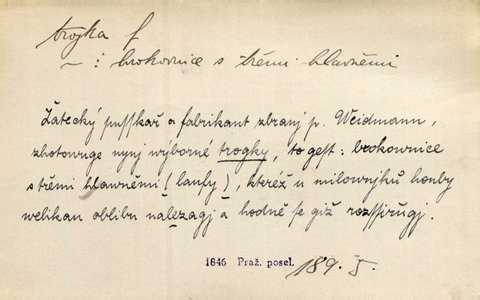 trojka f
– : brokovnice s třémi hlavněmi
Žatecký pusskař a fabrikant zbranj p. Weidmann,
zhotowuge nynj wýborné trogky, to gest: brokownice
s třémi hlawněmi (laufy), kteréž u milownjků honby
welikau oblibu nalezagj a hodně se giž rozssiřugj.
1846 Praž. posel. 189. I.